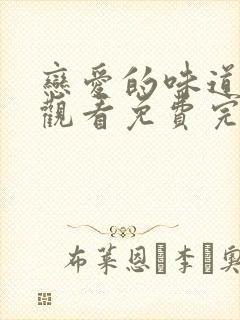 戀愛的味道
觀看免費完
布萊恩 李 奧